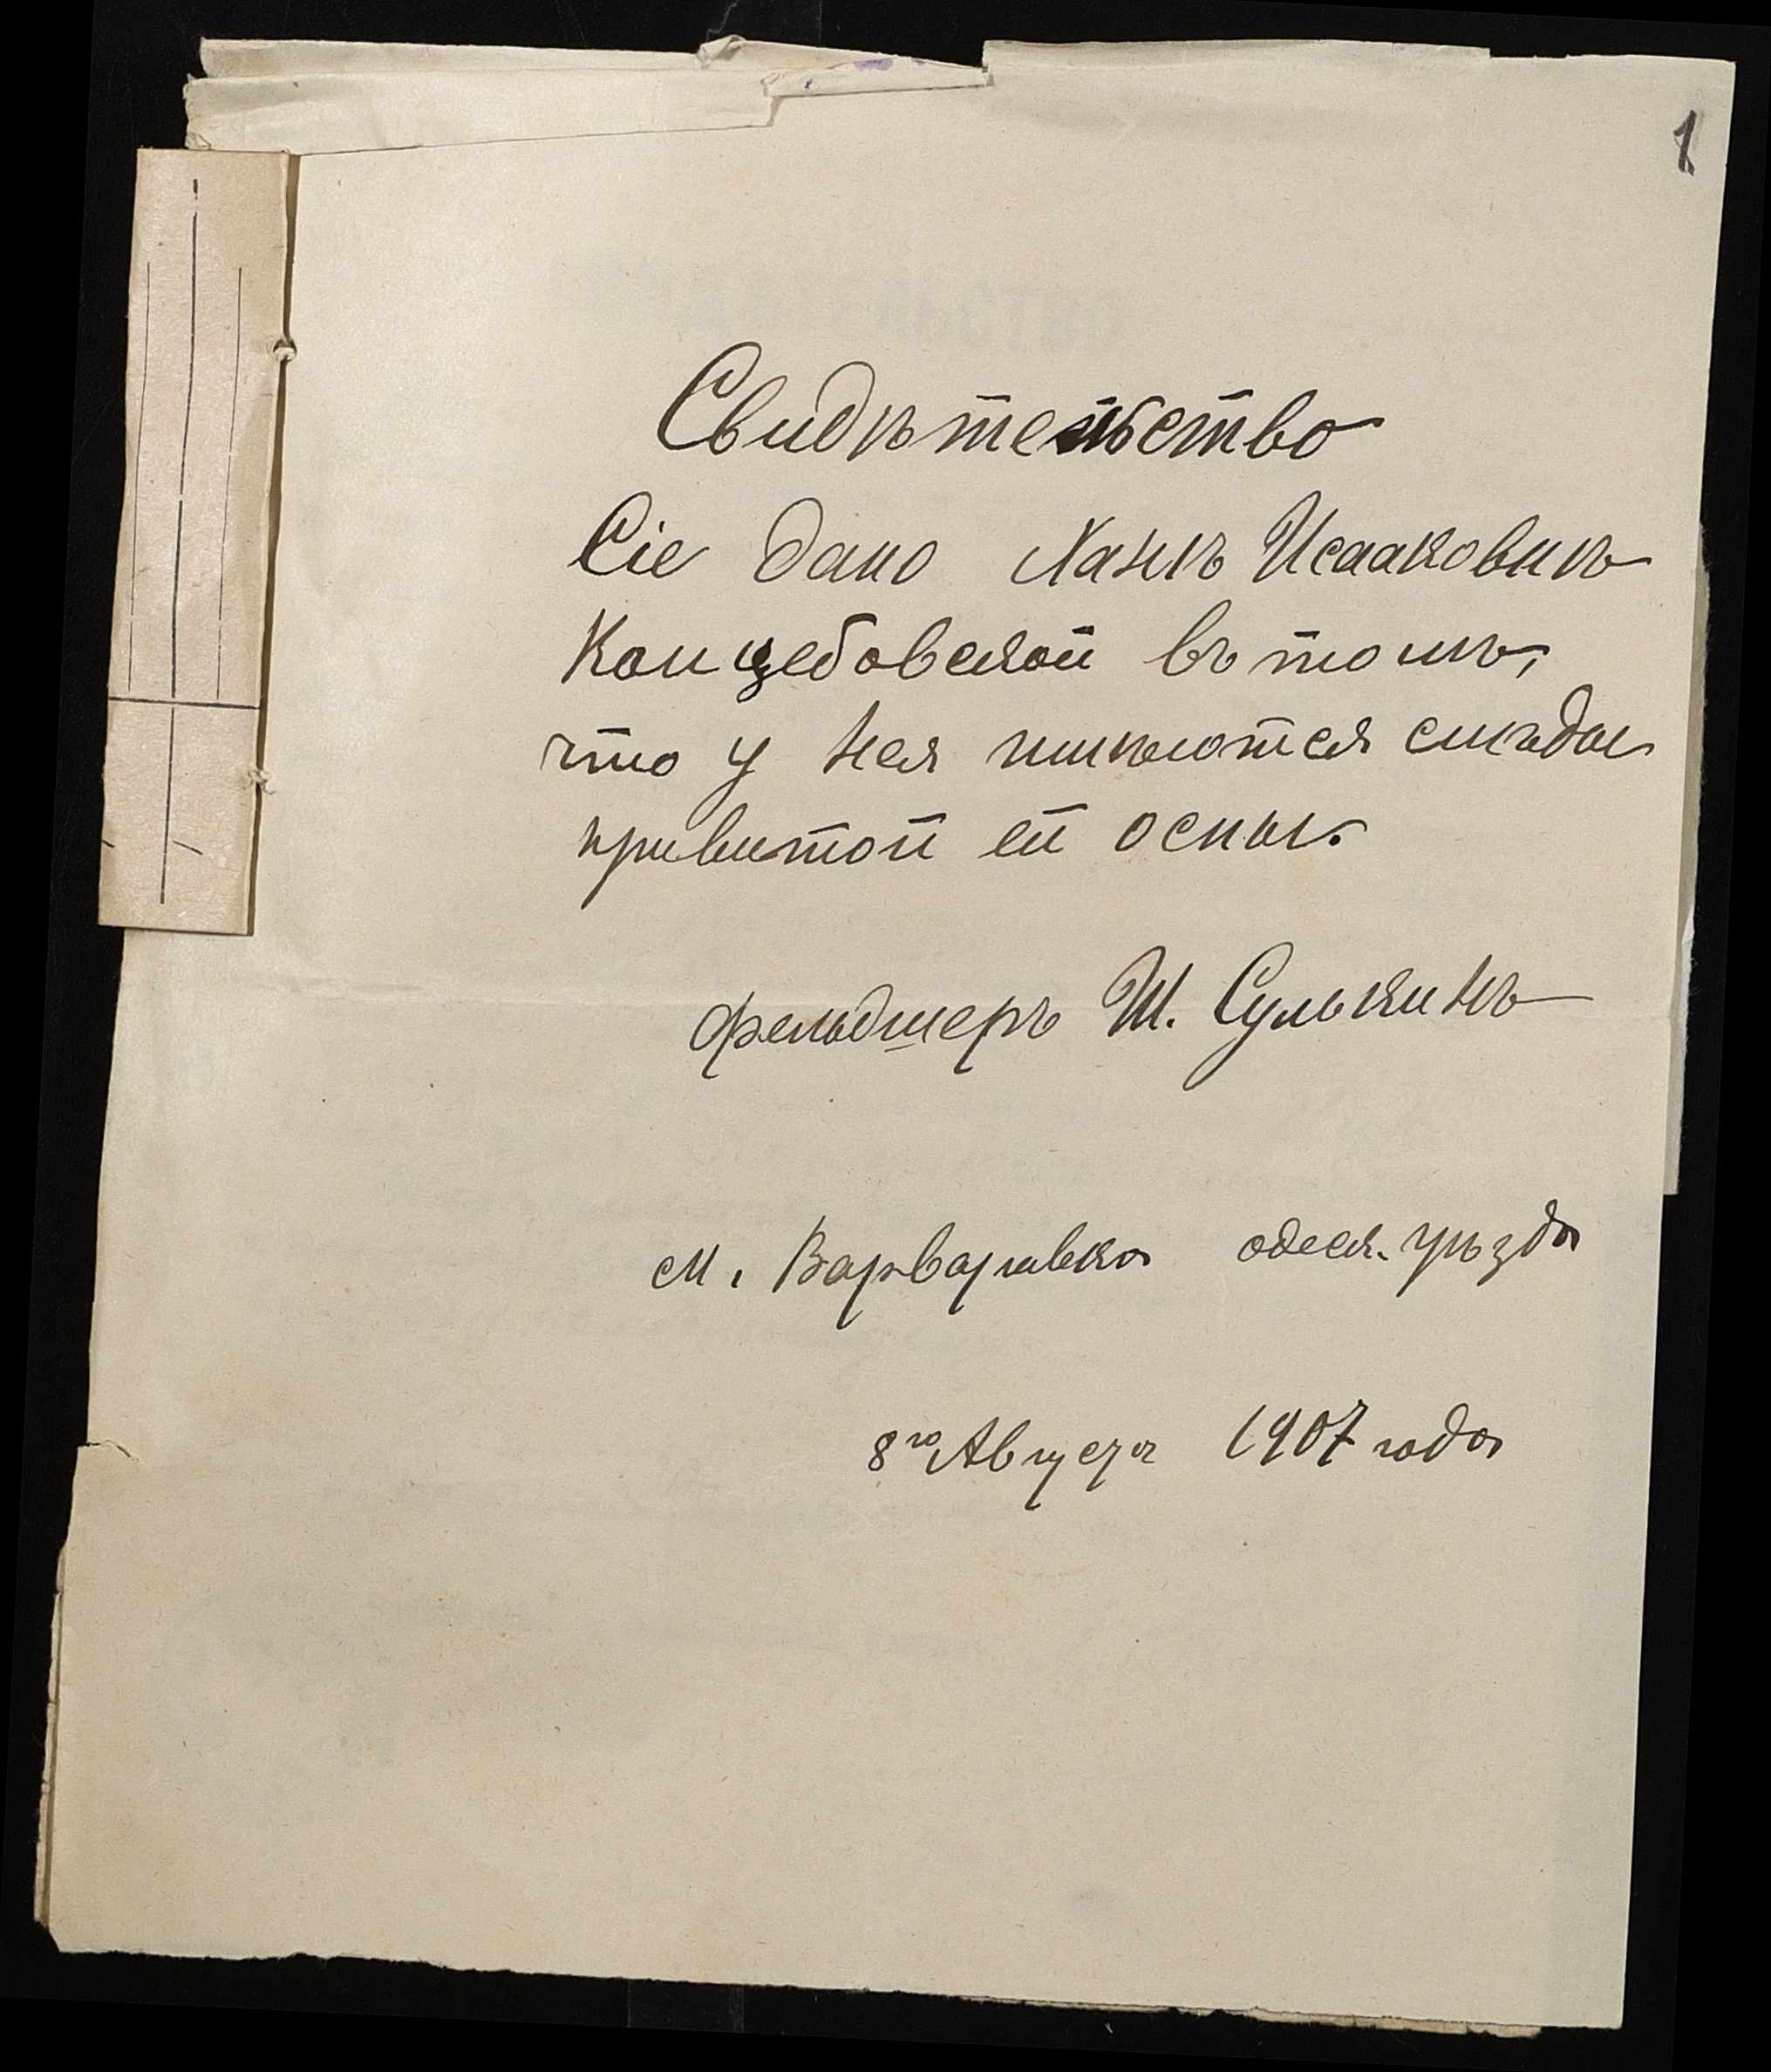 1
Свидѣтельство
Сіе дано Ханѣ Исааковнѣ
Концебовской въ томъ,
что у нея имѣются слѣды
привитой ей оспы.
Фельдшеръ Ш. Сулькинъ
м. Варваровка одесск. уѣзда
8го Августа 1907 года